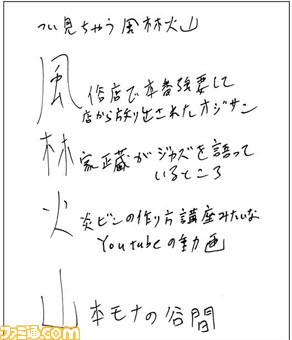 つい見ちゃう風林火山
風俗店で本番強要して
店から放り出されたオジサン
林家正蔵がジャズを語って
いるところ
火炎ビンの作り方講座みたいな
Youtubeの動画
山本モナの谷間
ファミ通.com